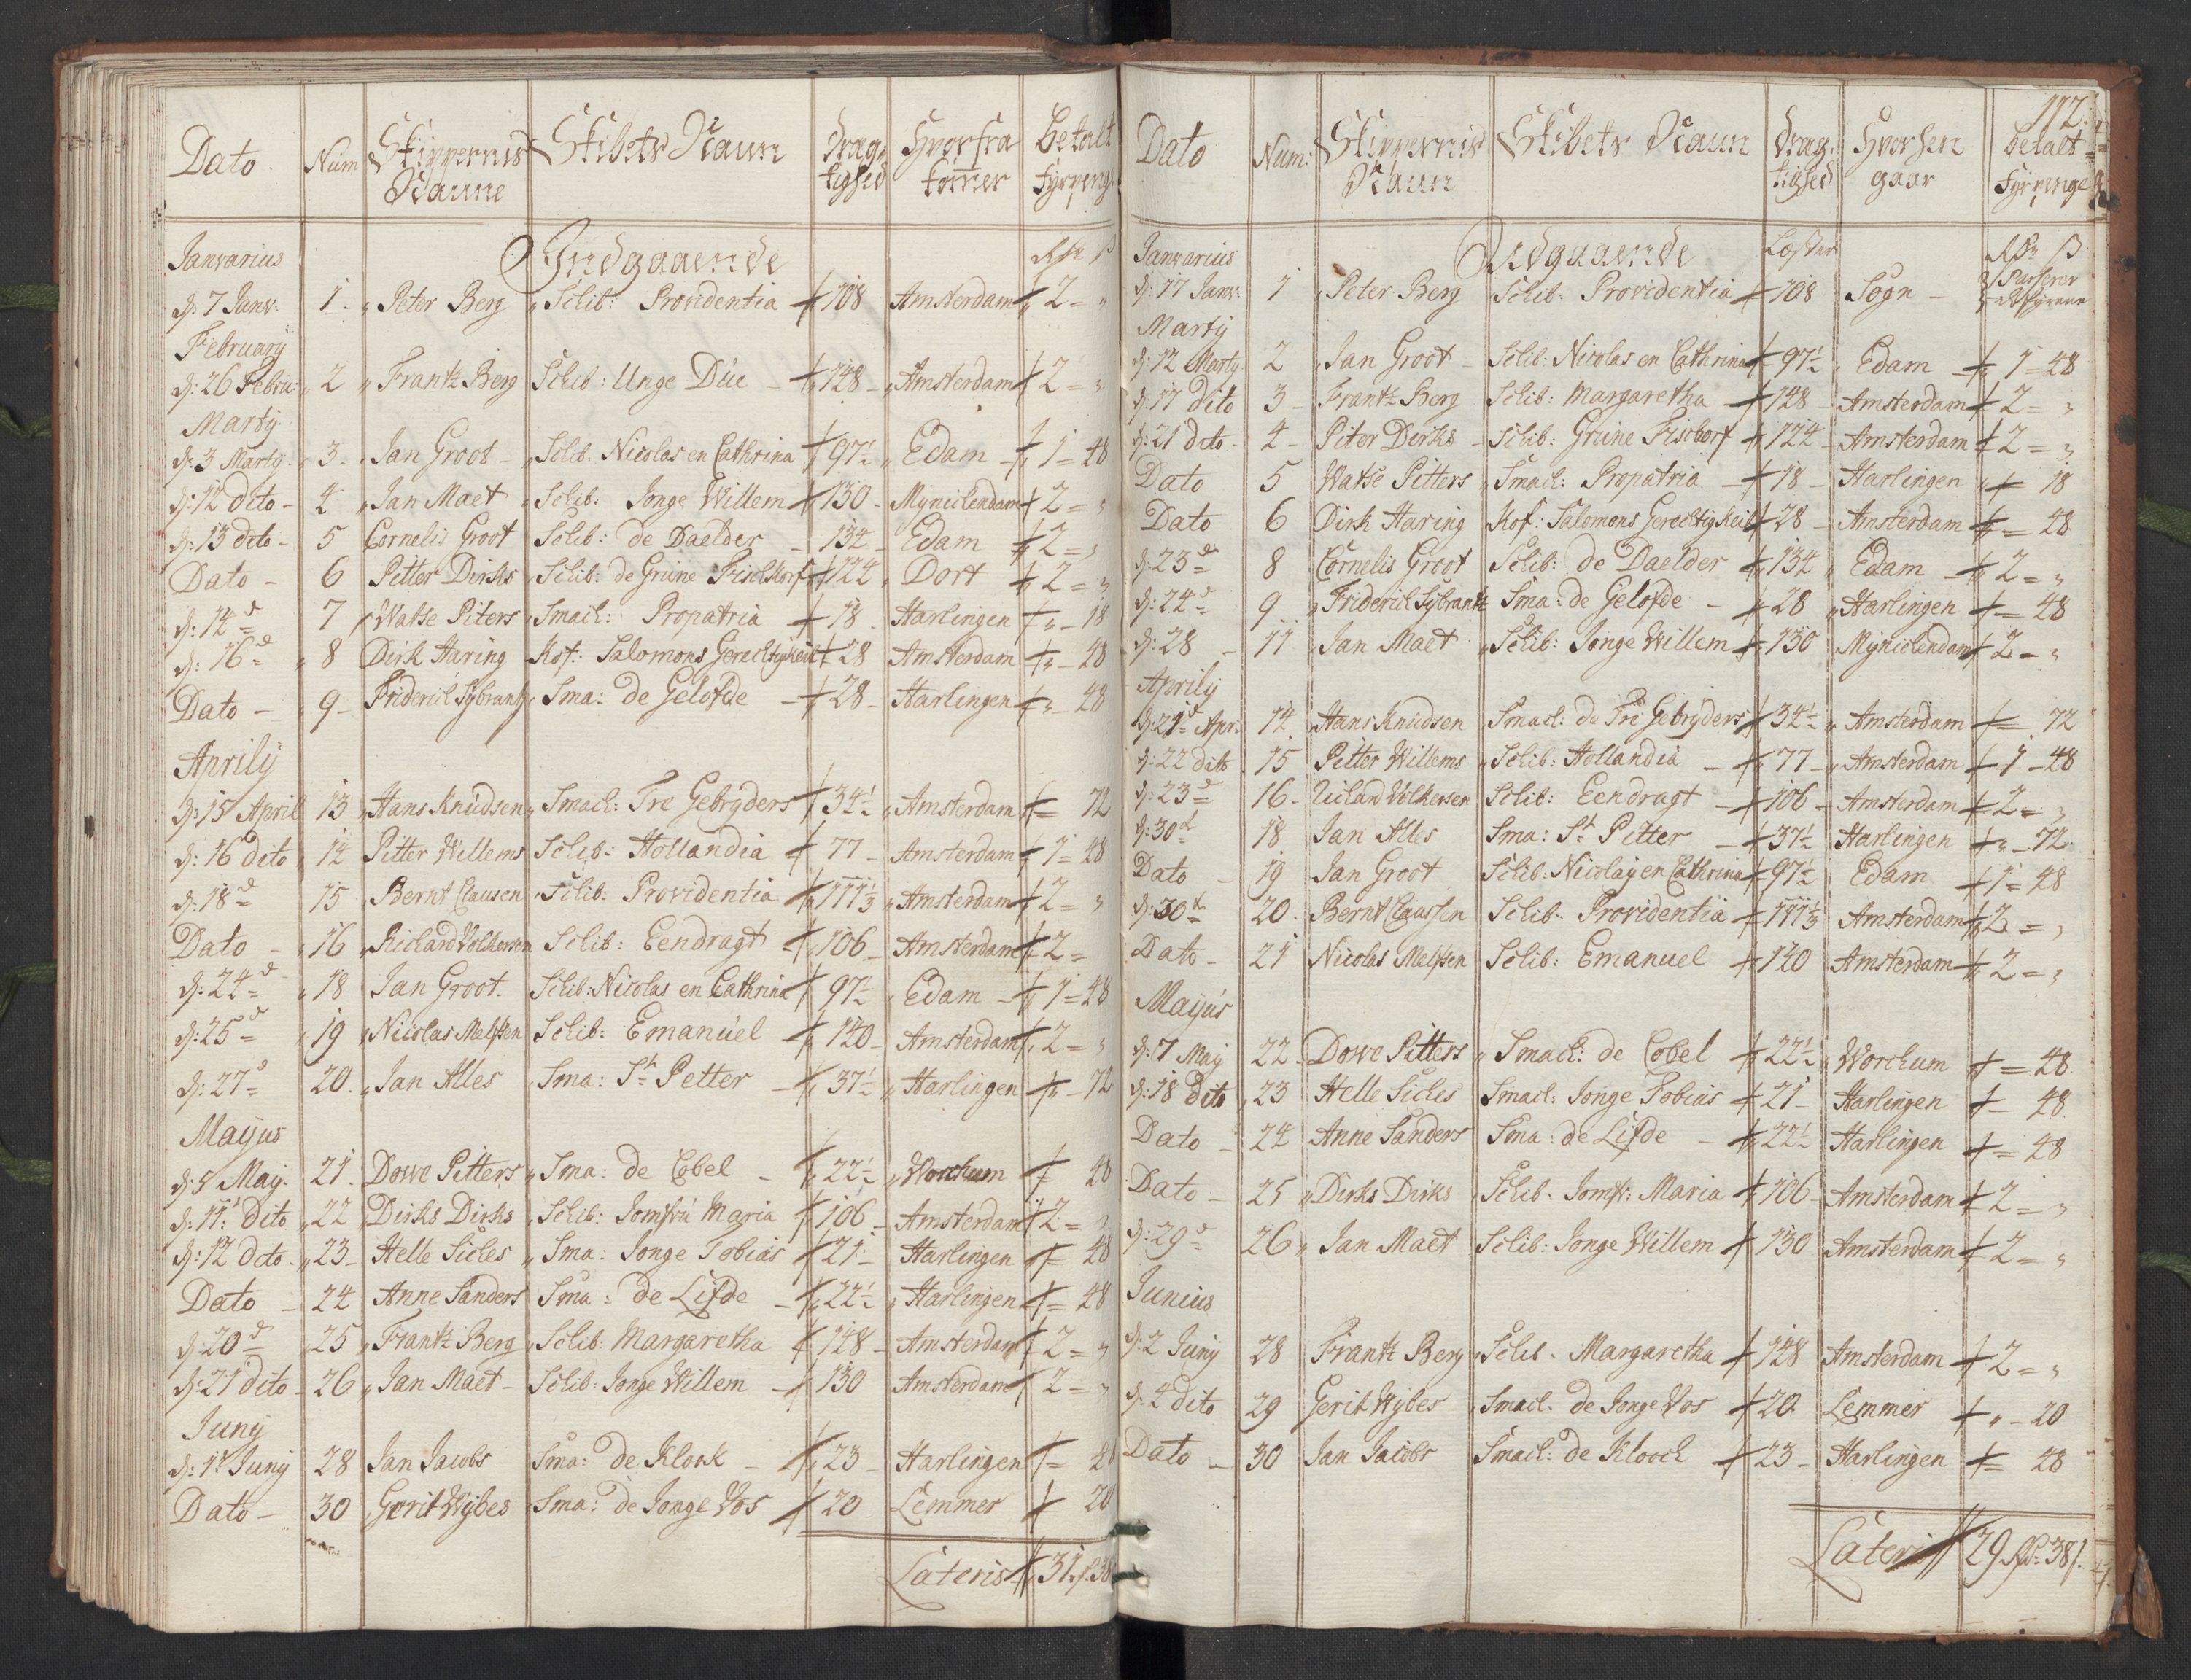 Dato Num Skippernis Naune Skibets Naun Dragtighed Hvorfra kommer betalt Fyrpeng
Indgaaende
Januarius
d: 7 Janv: 1 Peter Berg Schib: Providentia 108 Amsterdam 2 = "
February
d: 26 Febru: 2 Frantz Berg Schib: Unge Due 128 Amsterdam 2 = "
Martÿ
d: 3 Martÿ 3 Jan Groot Schib. Nicolas en Cathrina 97½ Edam 1 = 48
d: 12 dito 4 Jan Maet Schib. Jonge Willem 130 Mÿnichendam 2 = "
d: 13 dito 5 Cornelis Groot Schib: de Daelder 134 Edam 2 = "
Dato 6 Pitter Dirks Schib: de Grüne 124 Dort 2 = "
d: 14 d 7 Watse Piters Smach: Propatria 18 Harlingen " 18
d: 16 d 8 Dirk Haring Kof: Salomons Gerechtigkeit 28 Amsterdam " 48
Dato 9 Friderich Sÿbrantz Sma: de Gelofde 28 Harlingen " 48
Aprilÿ
d: 15 April 13 Hans Knudsen Smach: Tre Gebrÿders 34½ Amsterdam = 72
d: 16 dito 14 Pitter Willems Schib: Hollandia 77 Amsterdam 1 = 48
d: 18 d 15 Bernt Clausen Schib: Providentia 111⅓ Amsterdam 2 = "
Dato 16 Richard Volkersen Schib: Eendragt 106 Amsterdam 2 =
d: 24 d 18 Jan Groot. Schib: Nicolas en Cathrina 97½ Edam 1 = 48
d: 25 d 19 Nicolas Melssen Schib: Emanuel 140 Amsterdam 2 = "
d: 27 d 20. Jan Alles Sma: St Petter 37½ Harlingen " 72
Mayus
d: 5 May. 21. Dowe Pitters Sma: de Cobel 22½ Worchum 48
d: 11: dito 22 Dirks Dirks Schib: Jomfru Maria 106 Amsterdam 2 = "
d: 12 dito 23 Helle Sicles Sma: Jonge Tobias 21 Harlingen = 48
Dato 24 Anne Sanders Sma: de Lifde 22½ Harlingen = 48
d: 20 d 25 Frantz Berg Schib: Margaretha 148 Amsterdam 2 = "
d: 21 dito 26 Jan Maet Schib: Jonge Willem 130 Amsterdam 2 = "
Junÿ
d: 1t Junÿ 28 Jan Jacobs Sma: de Klook 23 Harlingen = 48
Dato 30 Gerit Wÿbes Sma: de Jonge Vos 20 Lemmer 20
Lateris 31 38
117.
Dato Num: Skippernis Naun Skibets Naun Dragtighed Hvorhen gaar betalt Fyrpenge
Udgaaende Læster
Januarius
d: 17 Janv: 1 Peter Berg Schib. Providentia 108 Sogn
Martÿ
d: 12 Martÿ 2 Jan Groot Schib: Nicolas en Cathrina 97½ Edam 1 = 48
d: 17 dito 3 Frantz Berg Schib: Margaretha 128 Amsterdam 2 = "
d: 21 dito 4 Piter Dirks Schib: Grüne 124 Amsterdam 2 = "
Dato 5 Watse Pitters Smach: Propatria 18 Harlingen 18
Dato 6 Dirk Haring Kof: Salomons Gerechtigkeit 28 Amsterdam = 48
d: 23 d 8 Cornelis Groot Schib: de Daelder 134 Edam 2 = "
d: 24 d 9 Friderich Sÿbrantz Sma: de Gelofde 28 Harlingen = 48
d: 28 11 Jan Maet Schib: Jonge Willem 130 Mÿnichendam 2 = "
Aprilÿ
d: 21 d Apr. 14 Hans Knudsen Smach: de Tre Gebrÿders 34½ Amsterdam = 72
d: 22 dito 15 Pitter Willems Schib: Hollandia 77 Amsterdam 1 = 48
d: 23 d 16 Volkersen Schib: Eendragt 106 Amsterdam 2 = "
d: 30 d 18 Jan Alles Sma: St Pitter 37½ Harlingen " 72
Dato 19 Jan Groot Schib: Nicolaÿ en Cathrina 97½ Edam 1 = 48
d: 30 d 20. Bernt Claussen Schib. Providentia 111⅓ Amsterdam 2 = "
Dato 21 Nicolas Melssen Schib: Emanuel 140 Amsterdam 2 = "
Mayus
d: 7 May 22 Dowe Pitters Smach: de Cobel 22½ Worchum = 48
d: 18 dito 23 Helle Sicles Smach: Jonge Tobias 21 Harlingen 48
Dato 24 Anne Sanders Sma: de Lifde 22½ Harlingen = 48
Dato 25 Dirks Dirks Schib. Jomfr: Maria 106 Amsterdam 2 = "
d: 29 d 26 Jan Maet Schib: Jonge Willem 130 Amsterdam 2 = "
Junius
d: 2 Junÿ 28 Frantz Berg Schib. Margaretha 148 Amsterdam 2 = "
d: 4 dito 29 Gerit Wÿbes Smach. de Jonge Vos 20 Lemmer " 20
Dato 30 Jan Jacobs Smach: de Klooch 23 Harlingen = 48
Lateris 29 38